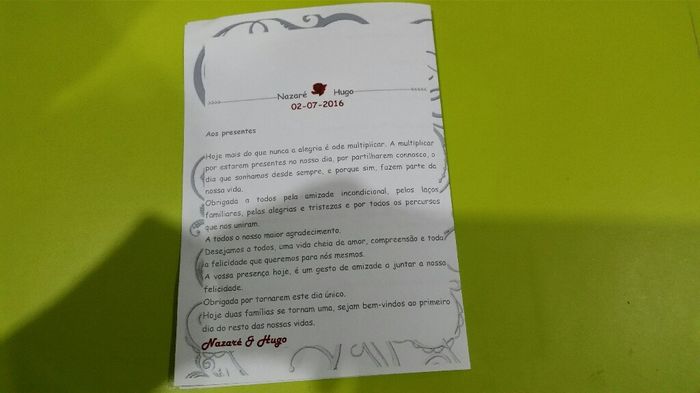 Nazaré Hugo
02-07-2016
Aos presentes
Hoje mais do que nunca a alegria é ode multiplicar. A multiplicar
por estarem presentes no nosso dia, por partilharem connosco, o
dia que sonhamos desde sempre, e porque sim, fazem parte da
nossa vida.
Obrigada a todos pela amizade incondicional, pelos laços
familiares, pelas alegrias e tristezas e por todos os percursos
que nos uniram.
A todos o nosso maior agradecimento.
Desejamos a todos, uma vida cheia de amor, compreensão e toda
a felicidade que queremos para nós mesmos.
A vossa presença hoje, é um gesto de amizade a juntar a nossa
felicidade.
Obrigada por tornarem este dia único.
Hoje duas famílias se tornam uma, sejam bem-vindos ao primeiro
dia do resto das nossas vidas.
Nazaré & Hugo